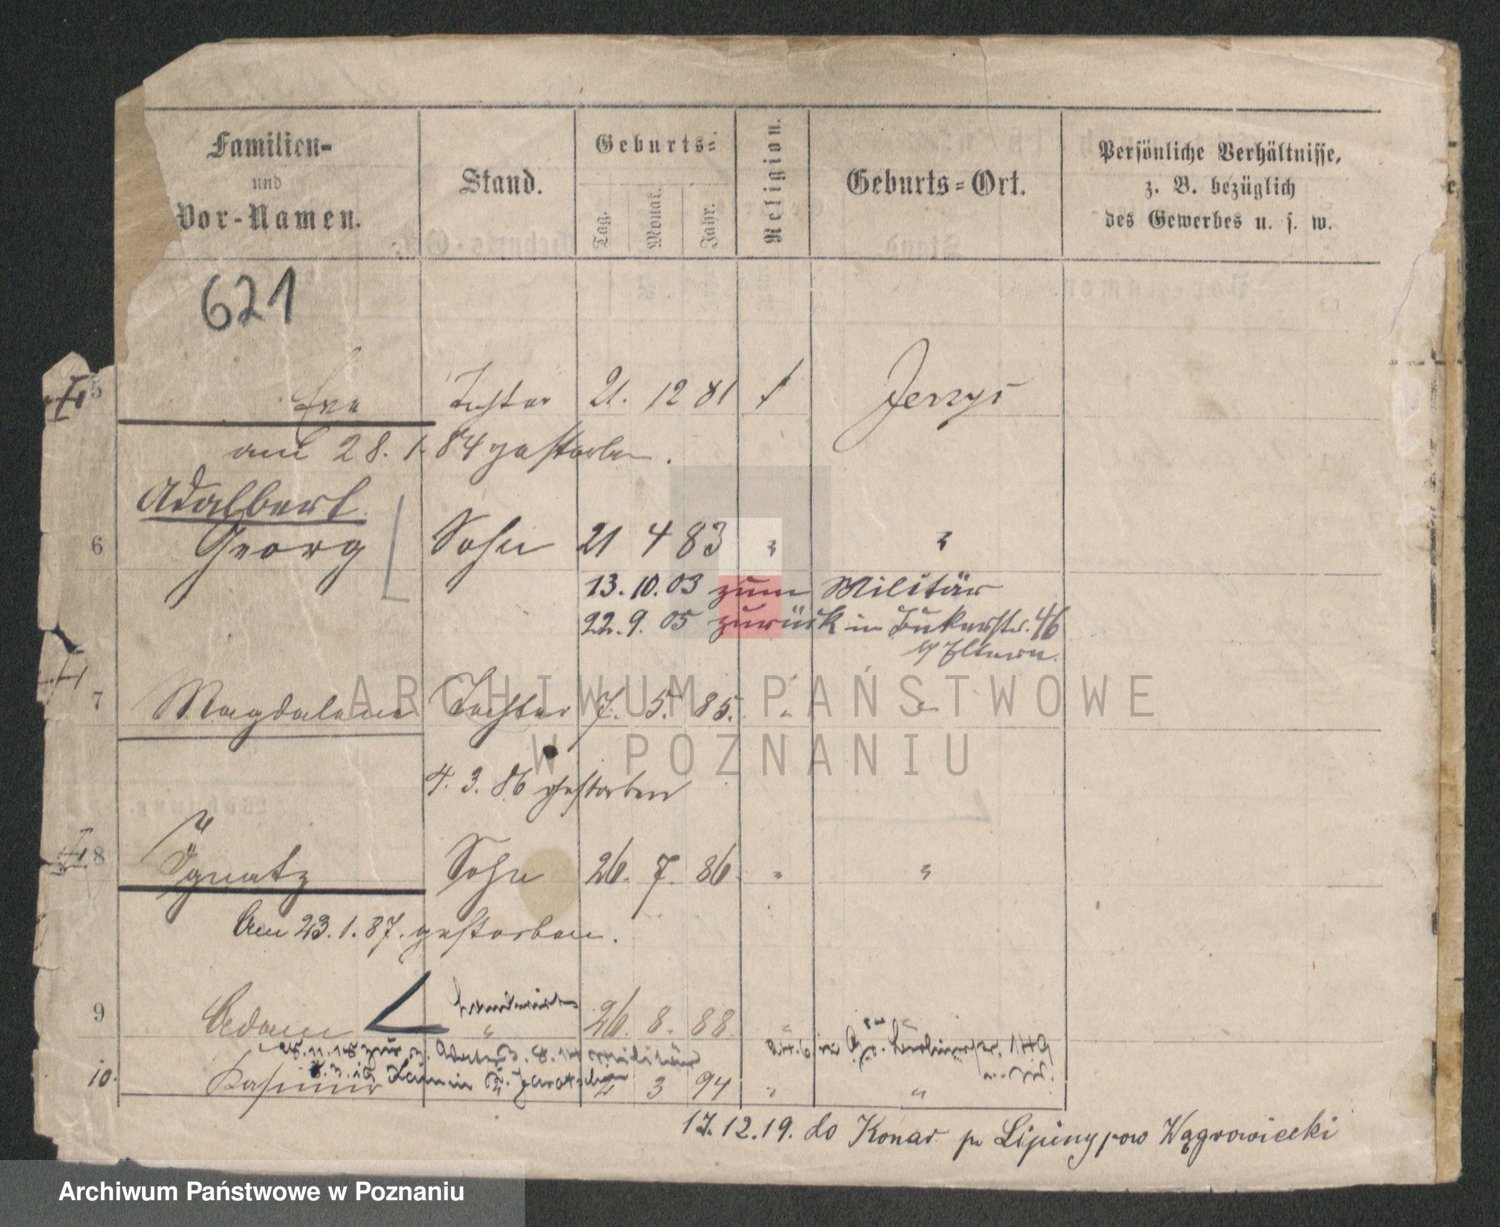 Familien-
und
Vor-Namen.
Stand.
Geburts-
Tag. Monat. Jahr.
Religion.
Geburts-Ort.
Persönliche Verhältnisse,
z. B. bezüglich
des Gewerbes u. s. w.
621
5 Eva Tochter 21. 12 81 Jerzys
am 28. 1. 84 gestorben.
Adalbert
6 Georg Sohn 21 4 83 " "
13. 10. 03 zum Militär
22. 9. 05 zurück in Bukerstr. 46
b/ Eltern.
7 Magdalena Tochter 7. 5. 85. " "
4. 3. 86 gestorben
8 Ignatz Sohn 26. 7. 86. " "
Am 23. 1. 87. gestorben.
9 Adam " 26. 8. 88 " "
zur Militär
10. Kasimir 2 3 94 " "
17. 12. 19. do Konar p. Lipiny pow Wągrowiecki
ARCHIWUM PAŃSTWOWE
W POZNANIU
Archiwum Państwowe w Poznaniu